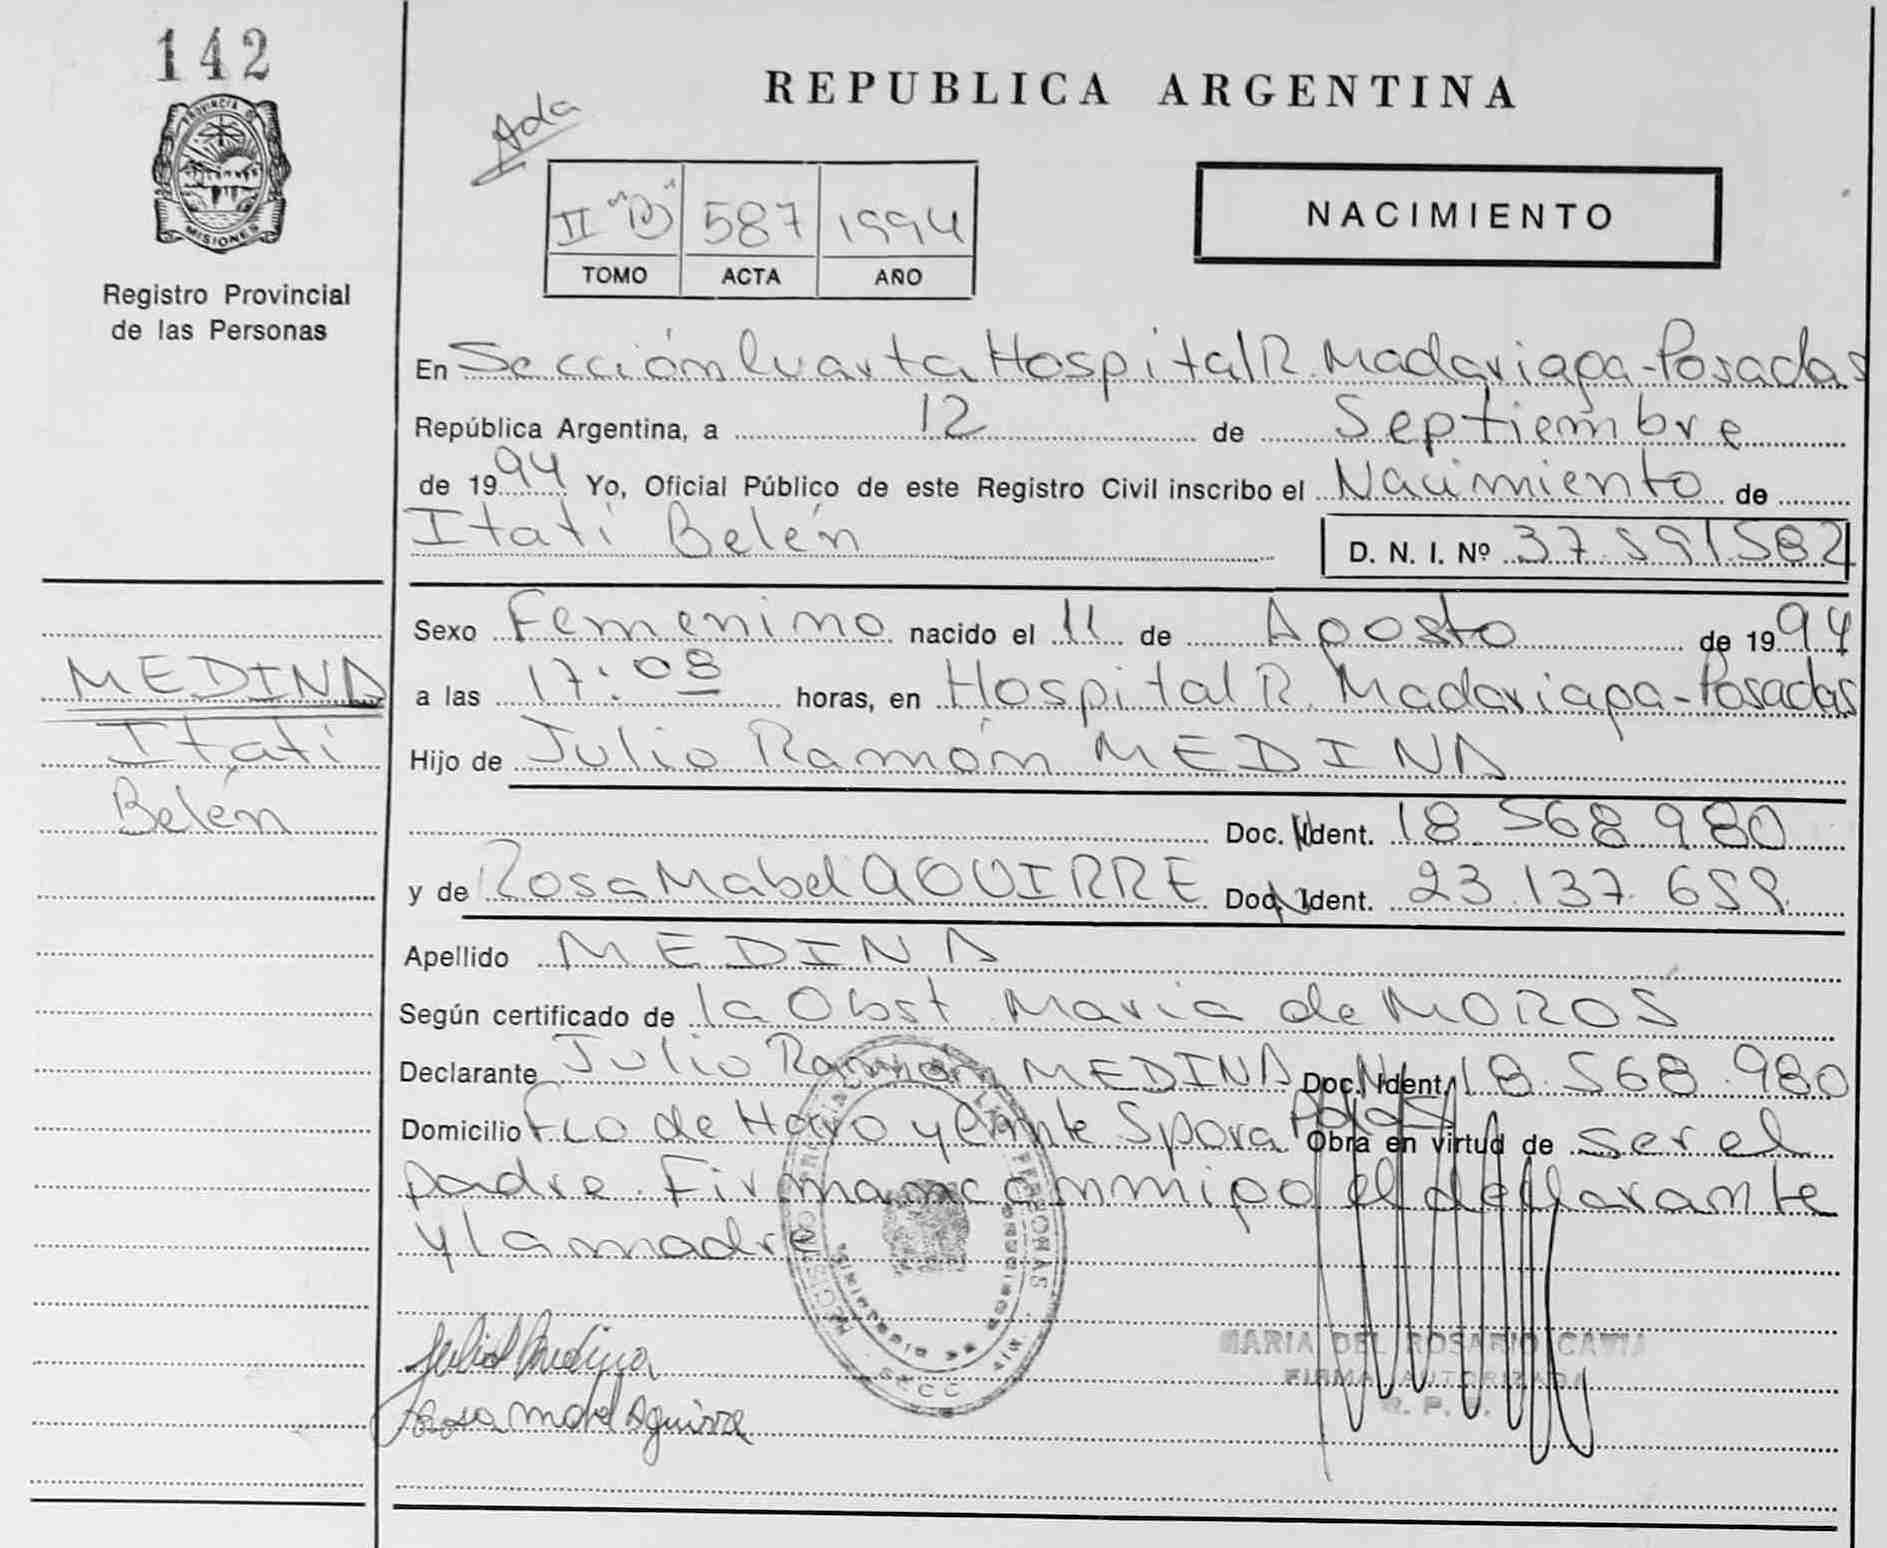 142
PROVINCIA DE
MISIONES
Registro Provincial
de las Personas
Ada
REPUBLICA ARGENTINA
II "B" 587 1994
TOMO ACTA AÑO
NACIMIENTO
En Sección Cuarta Hospital R. Madariaga-Posadas
República Argentina, a 12 de Septiembre
de 1994 Yo, Oficial Público de este Registro Civil inscribo el Nacimiento de
Itatí Belén D. N. I. Nº 37.591.582
Sexo Femenino nacido el 11 de Agosto de 1994
a las 17:08 horas, en Hospital R. Madariaga-Posadas
Hijo de Julio Ramón MEDINA
Doc. Ident. 18.568.980
y de Rosa Mabel AGUIRRE Doc. Ident. 23.137.659
Apellido MEDINA
Según certificado de la Obst. Maria de MOROS
Declarante Julio Ramón MEDINA Doc. Ident. 18.568.980
Domicilio Fco de Haro y Cmnte Spora Pdas Obra en virtud de ser el
padre. Firman conmigo el declarante
y la madre
MEDINA
Itatí
Belén
Julio Medina
Rosa Mabel Aguirre
MARIA DEL ROSARIO
FIRMA AUTORIZADA
R. P. P.